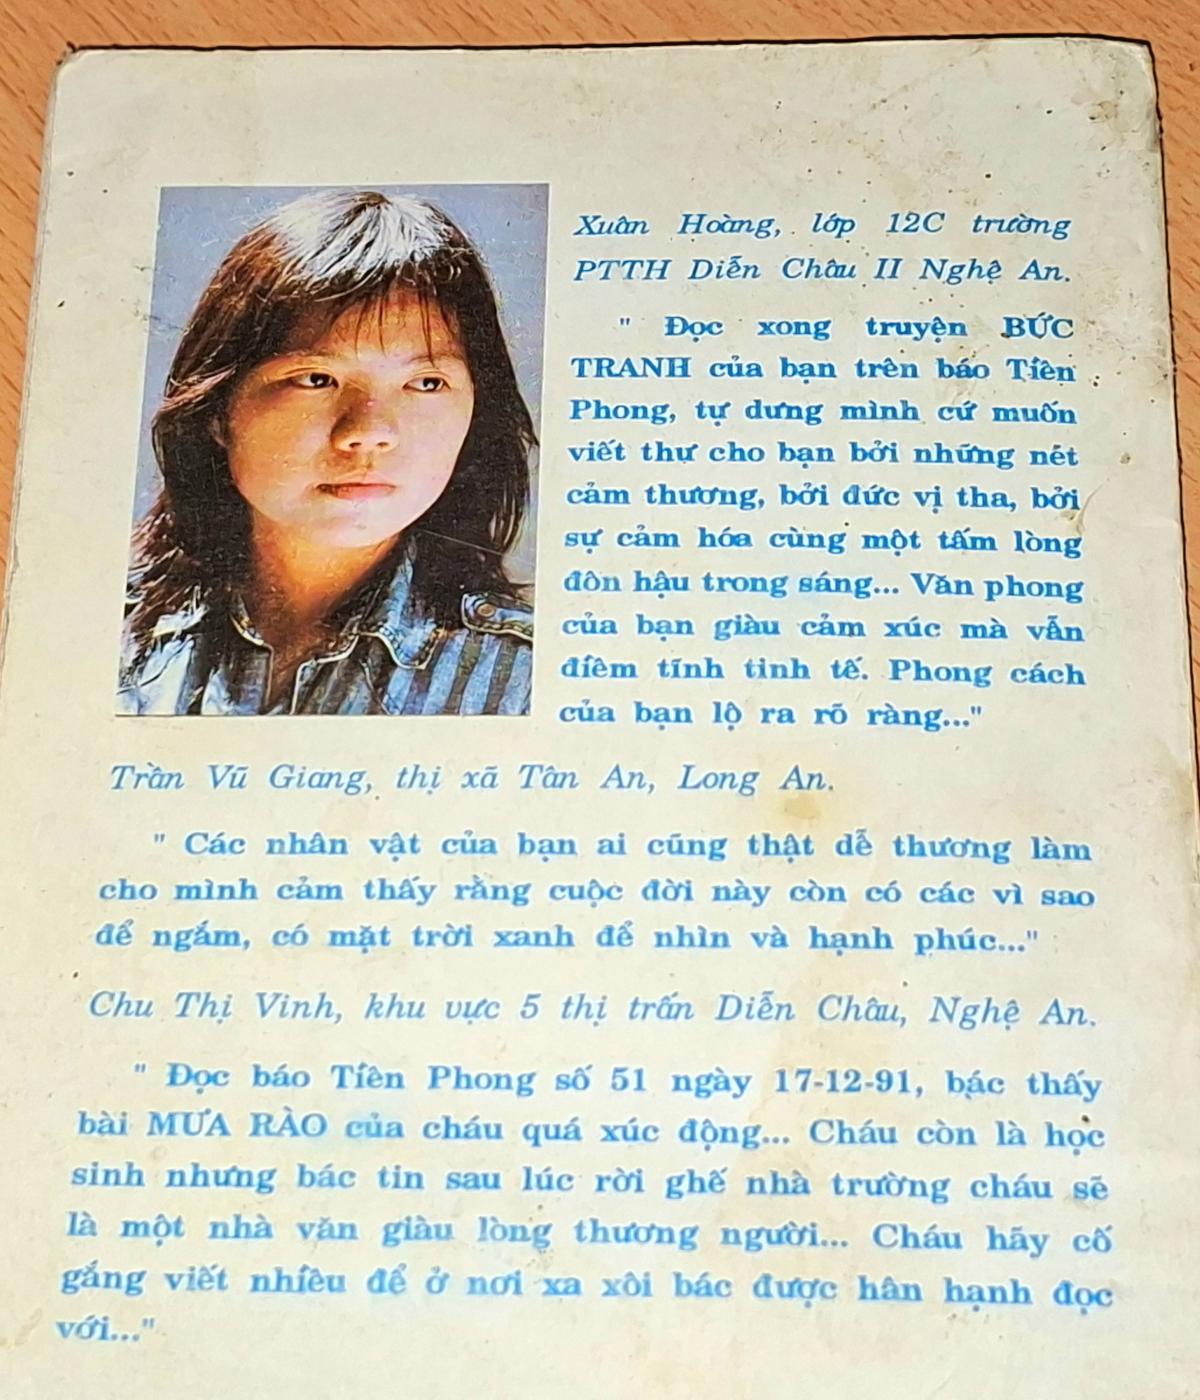 Xuân Hoàng, lớp 12C trường
PTTH Diễn Châu II Nghệ An.
" Đọc xong truyện BỨC
TRANH của bạn trên báo Tiền
Phong, tự dưng mình cứ muốn
viết thư cho bạn bởi những nét
cảm thương, bởi đức vị tha, bởi
sự cảm hóa cùng một tấm lòng
đôn hậu trong sáng... Văn phong
của bạn giàu cảm xúc mà vẫn
điềm tĩnh tinh tế. Phong cách
của bạn lộ ra rõ ràng..."
Trần Vũ Giang, thị xã Tân An, Long An.
" Các nhân vật của bạn ai cũng thật dễ thương làm
cho mình cảm thấy rằng cuộc đời này còn có các vì sao
để ngắm, có mặt trời xanh để nhìn và hạnh phúc..."
Chu Thị Vinh, khu vực 5 thị trấn Diễn Châu, Nghệ An.
" Đọc báo Tiền Phong số 51 ngày 17-12-91, bác thấy
bài MƯA RÀO của cháu quá xúc động... Cháu còn là học
sinh nhưng bác tin sau lúc rời ghế nhà trường cháu sẽ
là một nhà văn giàu lòng thương người... Cháu hãy cố
gắng viết nhiều để ở nơi xa xôi bác được hân hạnh đọc
với..."